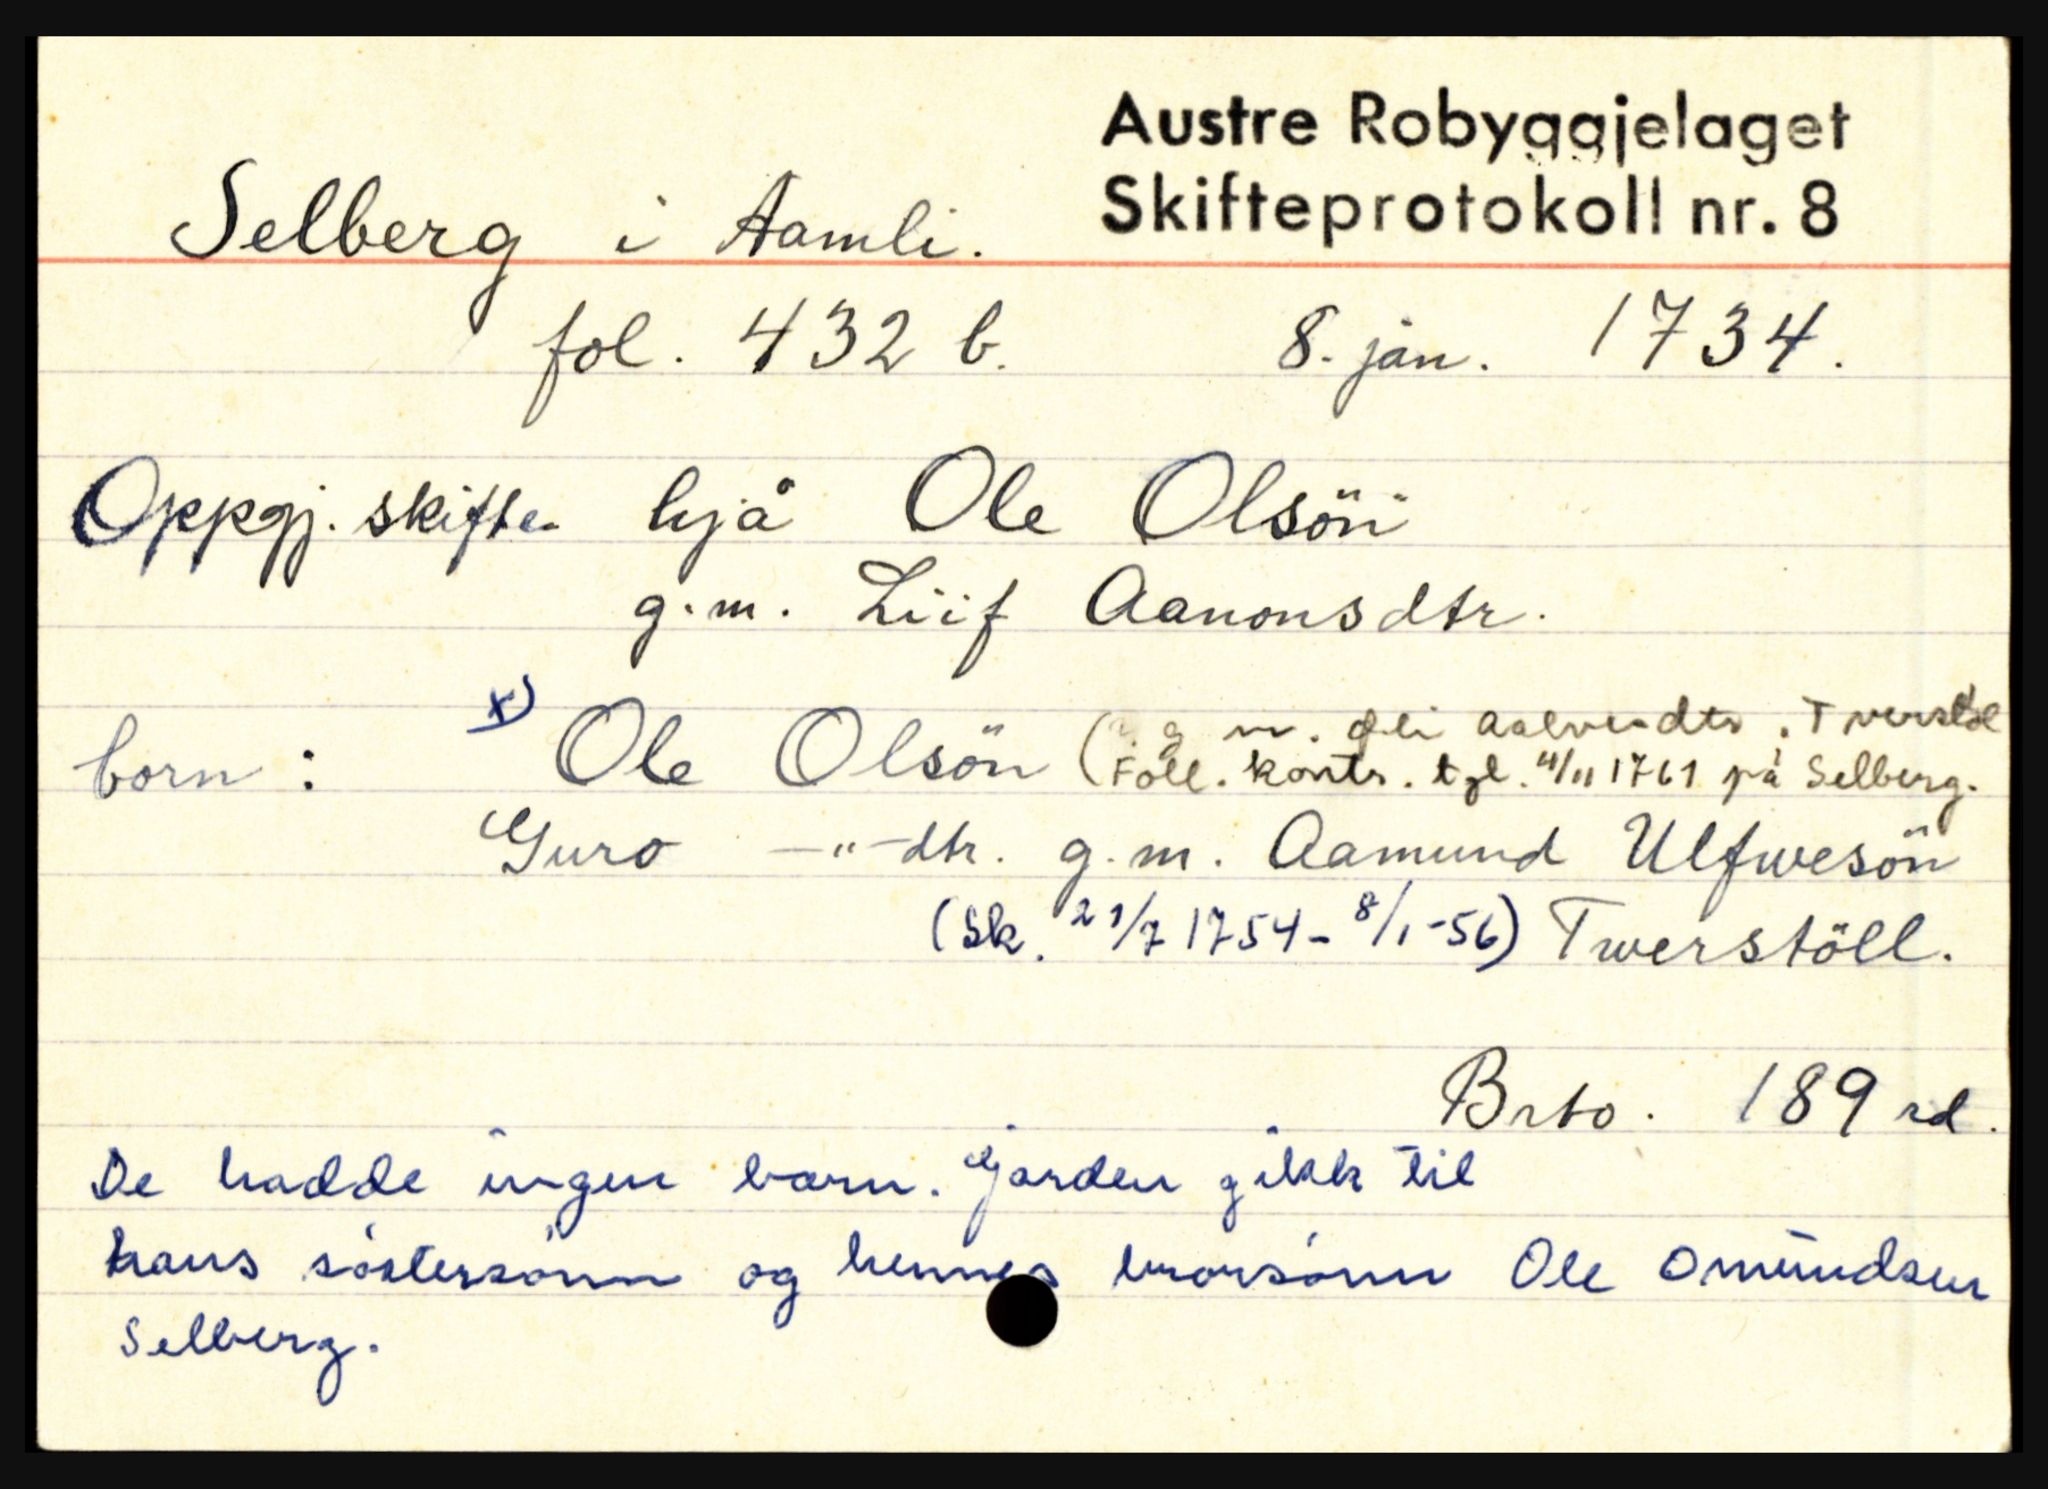 Austre Robyggjelaget
Skifteprotokoll nr. 8
Selberg i Aamli.
fol. 432 b. 8. jan. 1734.
Oppgj. skifte hjå Ole Olsön
g.m. Liif Aanonsdtr.
born: x) Ole Olsön ( g m. Aalvesdtr. Tverstöl
Föll. kontr. tgl. 11/11 1761 på Selberg.
Guro —"—dtr. g.m. Aamund Ulfwesön
(Sk. 21/7 1754 - 8/1-56) Twerstöll.
Brto. 189 rd.
De hadde ingen barn. Garden gikk til
hans söstersönn og hennes brorsönn Ole Omundsen
Selberg.